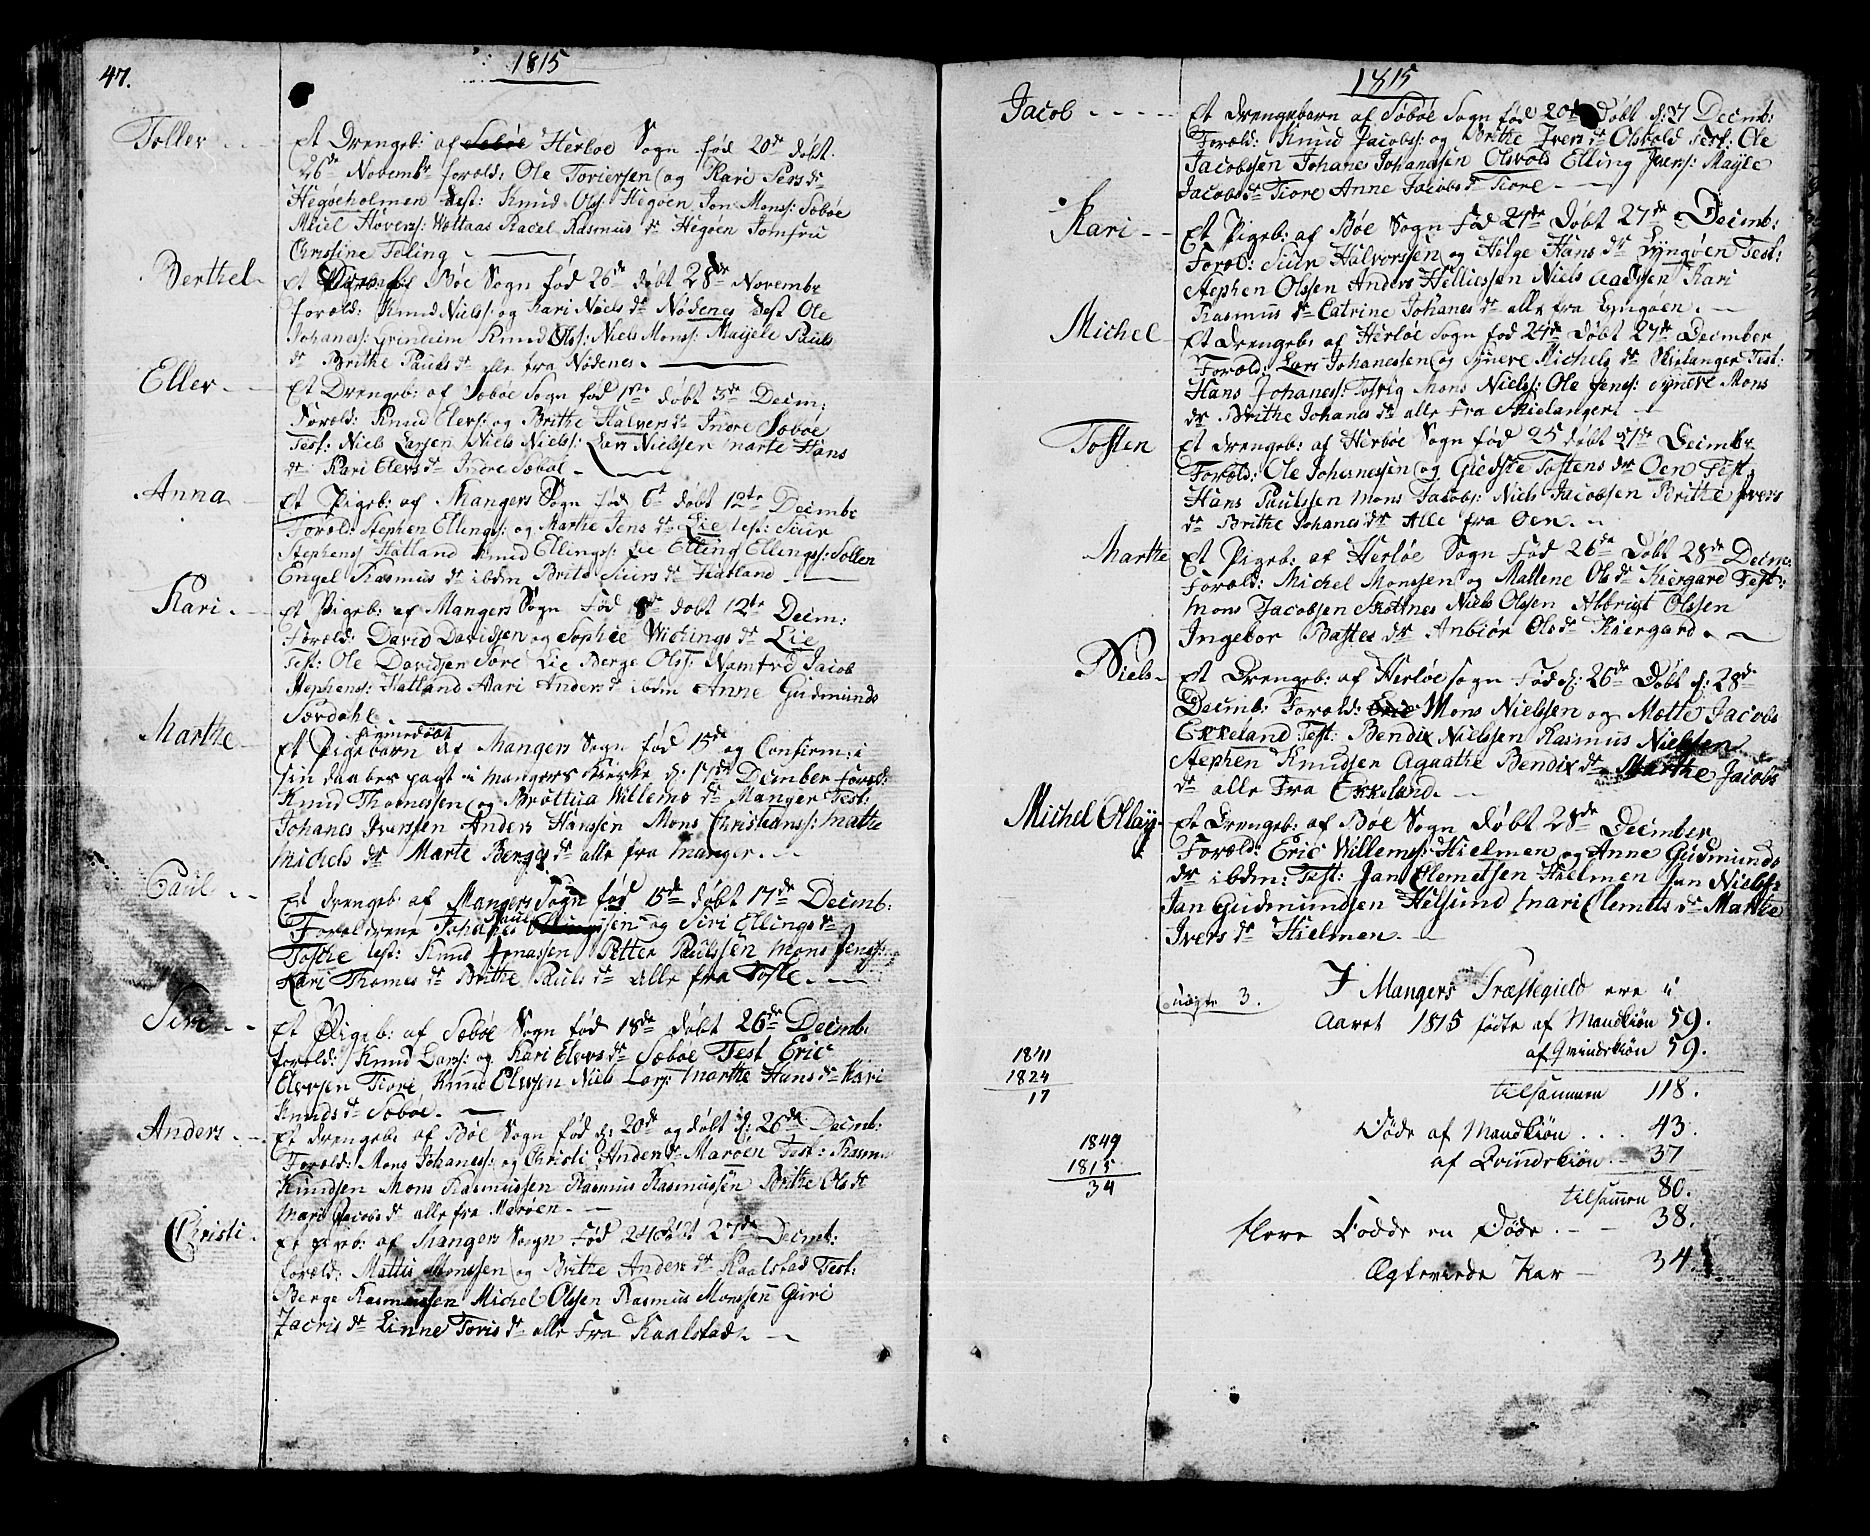 47.
1815
Toller
Et Drengeb: af Sæbøe Herløe Sogn fød 20de døbt
26de Novembr forold: Ole Toriersen og Kari Pers dr
Hegøeholmen Test: Knud Ols: Hegøen Jon Mons: Sæbøe
Rasmus dr Hegøen Jomfru
Christine Teling
Berthel
Et Bøe Sogn fød 26de døbt 28de Novembr
forold: Knud Niels: og Kari Niels dr Nødenes Test Ole
Johanes: Grinheim Knud Ols: Niels Mons: Mayele Pauls
dr Brithe Pauls dr alle fra Nødenes.
Eller
Et Drengeb: af Sæbøe Sogn fød 1ste døbt 3de Decm:
Forold: Knud Elers: og Brithe Halvers dr Indre Sæbøe
Test: Niels Larsen Niels Niels: Lars Nielssen Marte Hans
dr Kari Elers dr Indre Sæbøe
Anna
Et Pigeb: af Mangers Sogn fød 6t døbt 12te Decimbr
Forold: Stephen Ellings: og Marthe Jens dr Lie Test: Siur
Stephens: Hatland Knud Ellings: Lie Elling Ellings: Sollen
Engel Rasmus dr ibdm Brite Siurs dr Hatland
Kari
Et Pigeb: af Mangers Sogn fød 8de døbt 12te Decm:
Forold: David Davidsen og Sophie Wictings dr Lie
Test: Ole Davidsen Lie Berge Ols: Namtvd Jacob
Stephens: Hatland Kari Anders dr ibdm Anne Gudmunds
Særdahl.
Marthe
hjemedøbt
Et Pigebarn af Mangers Sogn fød 15de og Confirm: i
sin daabes pagt i Mangers Kierke d: 17de Decimber Forold:
Knud Thomessen og Brøttua Willems dr Manger Test:
Johanes Iverssen Anders Hanssen Mons Christians: Mathe
Michels dr Marte Berges dr alle fra Manger.
Paul
Et drengeb: af Mangers Sogn fød 15de døbt 17de Decimb:
Foreldrene Johanes Paulsen og Siri Ellings dr
Toske Test: Knud Jonassen Petter Paulssen Mons Jens:
Kari Thomes dr Brithe Pauls dr alle fra Toske.
Siri
Et Pigeb: af Sæbøe Sogn fød 18de døbt 26de Decimb:
forold: Knud Lars: og Kari Elers dr Sæbøe Test Eric
Elersen Fiore Knud Elersen Niels Lars: Marthe Hans dr Kari
Knuds dr Sæbøe.
Anders
Et drengeb: af Bøe Sogn fød d: 20de og døbt d: 26de Decimb:
Forold: Mons Johanes: og Christi Anders dr Marøen Test: Rasm
Knudsen Mons Rasmussen Rasmus Rasmussen Brithe Ols dr
Mari Jacobs dr alle fra Marøen.
Christi
Et pigeb: af Mangers Sogn fød 24 døbt 27de Decimb:
forold: Mattis Monssen og Brithe Anders dr Kaalstad Test:
Berge Rasmussen Michel Olssen Rasmus Monssen Guri
Zacris dr Linne Toris dr alle fra Kaalstad.
1815
Jacob
Et drengebarn af Sæbøe Sogn fød 20de Døbt d: 27 Decimb:
Forold: Knud Jacobs: og Brithe Ivers dr Olsvold Test: Ole
Jacobssen Johanes Johanessen Olsvold Elling Ivers: Mayle
Jacobs dr Fiore Anne Jacobs dr Fiore
Kari
Et Pigeb: af Bøe Sogn fød 24de Døbt 27de Decimb:
Forol: Siur Halvorssen og Helge Hans dr Lyngøen Test:
Stephen Olssen Anders Hellicssen Niels Aadssen Kari
Rasmus dr Catrine Johanes dr alle fra Lyngøen.
Michel
Et drengeb: af Herløe Sogn fød 24de døbt 27de Decimber
Forold: Lars Johanessen og Synere Michels dr Skielanger Test:
Hans Johanes: Tofvig Mons Niels: Ole Jens: Synere Mons
dr Brithe Johanes dr alle fra Skielanger.
Tosten
Et drengeb: af Herløe Sogn fød 25 døbt 27de Decimbr
Forold: Ole Johanessen og Giedske Tostens dr Oen Test:
Hans Paulssen Mons Jacobs: Niels Jacobsen Brithe Ivers
dr Brithe Johanes dr Alle fra Oen.
Marthe
Et Pigeb: af Herløe Sogn fød 26de Døbt 28de Decim:
Forold: Michel Monssen og Mallene Ols dr Kiergard Test:
Mons Jacobsen Skottnes Niels Olssen Abbrigt Olssen
Ingebor Bastes dr Anbiør Ols dr Kiergard.
Niels
Et Drengeb: af Herløe sogn Fød d: 26de Døbt d: 28de
Decimb: Forold: Eric Mons Nielssen og Motte Jacobs
Erkeland Test: Bendix Nielssen Rasmus Nielssen
Stephen Knudsen Aquathe Bendix dr Marthe Jacobs
dr alle fra Erkeland.
Michel Ollay
Et Drengeb: af Bøe Sogn Døbt 28de Decimber
Forold: Eric Willems: Hielmen og Anne Gudmunds
dr ibdm: Test: Jan Clemetsen Hielmen Jan Niels:
Jan Gudmundsen Helsund Mari Clemets dr Marthe
Ivers dr Hielmen.
I Mangers Præstegield ere i
uægte 3.
Aaret 1815 fødte af Mandkiøn 59.
af Qvindekiøn 59.
tilsammen 118.
1841
1824
17
Døde af Mandkiøn . . . . 43.
af Qvindekiøn 37
tilsammen 80.
1849
1815
34
flere Fødde en Døde. 38.
Ægteviede Par 34